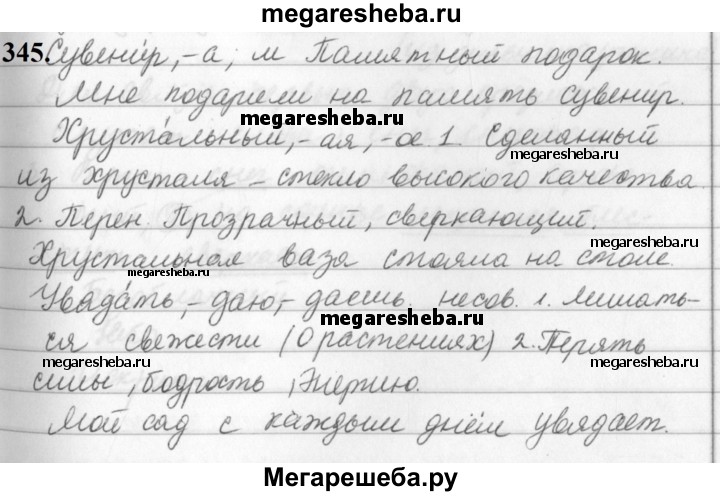 megaresheba.ru
345. Сувени́р, -а, м Памятный подарок.
megaresheba.ru
Мне подарили на память сувенир.
megaresheba.ru
Хруста́льный, -ая, -ое 1. Сделанный
megaresheba.ru
из хрусталя – стекло высокого качества.
2. Перен. Прозрачный, сверкающий.
megaresheba.ru
Хрустальная ваза стояла на столе.
megaresheba.ru
Увяда́ть, -даю, -даешь. несов. 1. Лишать-
megaresheba.ru
ся свежести (О растениях) 2. Терять
megaresheba.ru
силы, бодрость, энергию.
megaresheba.ru
Мой сад с каждым днём увядает.
Мегарешеба.ру